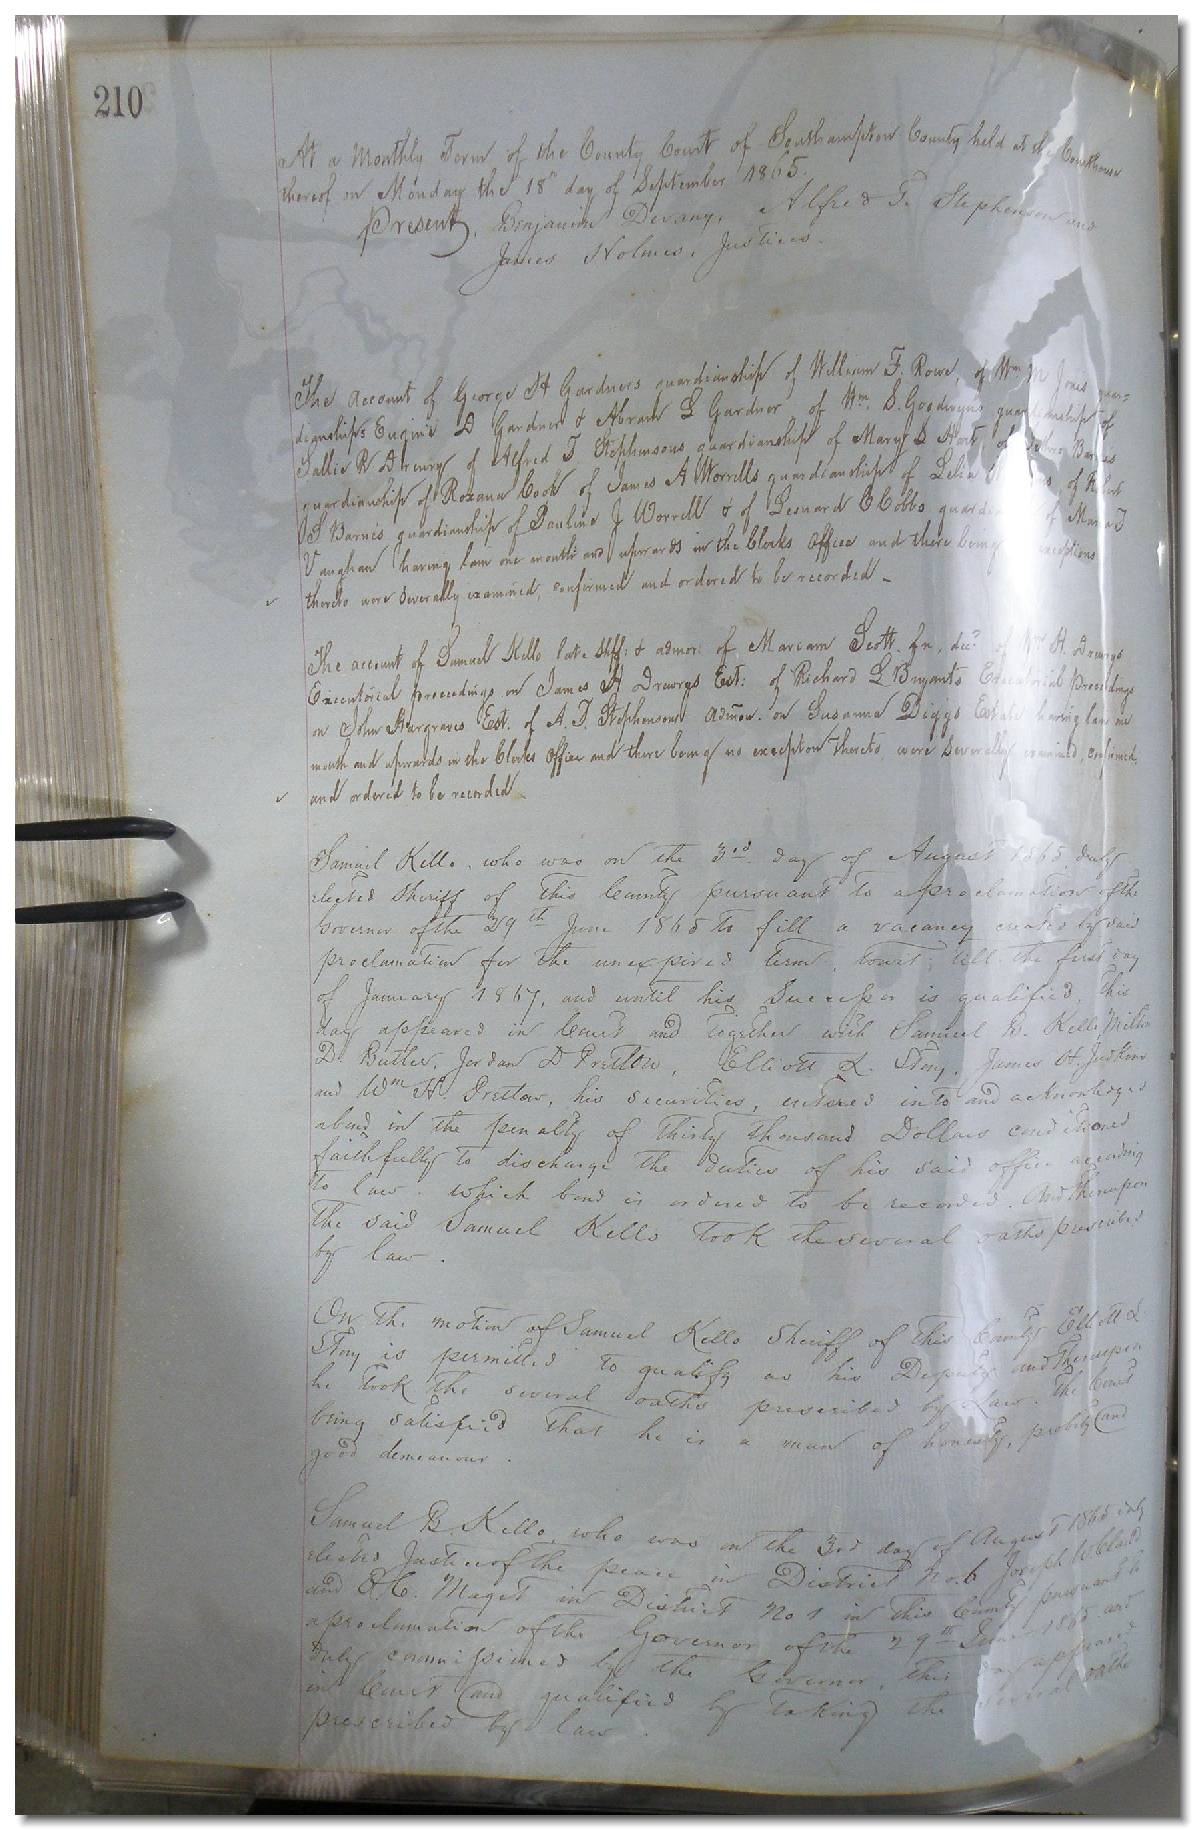 210
At a Monthly Term of the County Court of Southampton County held at the Courthouse
thereof on Monday the 18th day of September 1865.
Present, Benjamin Devany, Alfred T. Stephenson and
James Holmes, Justices.
The account of George H Gardners guardianship of William F. Rowe, of Wm M Jones guar=
dianships Eugine D Gardner & Abram L Gardner of Wm. S. Goodwyns guardianship of
Sallie R Drewry of Alfred T Stephensons guardianship of Mary S Hart of Barnes
guardianship of Roxana Cook of James A Worrells guardianship of Lelia of Robert
S Barnes guardianship of Pauline J Worrell & of Leonard C Cobbs guardianship of Maria T
Vaughan having lain one month and upwards in the Clerks Office and there being exceptions
thereto were severally examined, confirmed and ordered to be recorded
The account of Samuel Kello late Shff: & admor: of Marcum Scott. fn, decd of Wm H. Drewrys
Executorial proceedings on James H Drewrys Est: of Richard L Bryants Executorial proceedings
on John Hargraves Est. of A. T. Stephenson admor. on Susanna Diggs Estate having lain one
month and upwards in the Clerks Office and there being no exception thereto, were severally examined, confirmed,
and ordered to be recorded
Samuel Kello, who was on the 3rd day of August 1865 duly
elected Sheriff of this County pursuant to a proclamation of the
Governor of the 29th June 1865 to fill a vacancy created by said
proclamation for the unexpired term, to wit; till the first day
of January 1867, and until his Successor is qualified, this
day appeared in Court and together with Samuel B. Kello, Milton
D. Butler, Jordan D Pretlow, Elliott L. Story, James H. Judkins
and Wm H. Pretlow, his securities, entered into and acknowledged
a bond in the penalty of Thirty thousand Dollars conditioned
faithfully to discharge the duties of his said office according
to law. which bond is ordered to be recorded. And thereupon
the said Samuel Kello took the several oaths prescribed
by law.
On the motion of Samuel Kello Sheriff of this County Elliott L.
Story is permitted to qualify as his Deputy and thereupon
he took the several oaths prescribed by Law. The Court
being satisfied that he is a man of honesty, probity and
good demeanour.
Samuel B. Kello, who was on the 3rd day of August 1865 duly
elected Justice of the peace in District No. 6 Joseph W Claud
and Maget in District No 1 in this County pursuant to
a proclamation of the Governor of the 29th June 1865 and
duly commissioned by the Governor, this day appeared
in Court and qualified by taking the several oaths
prescribed by law.